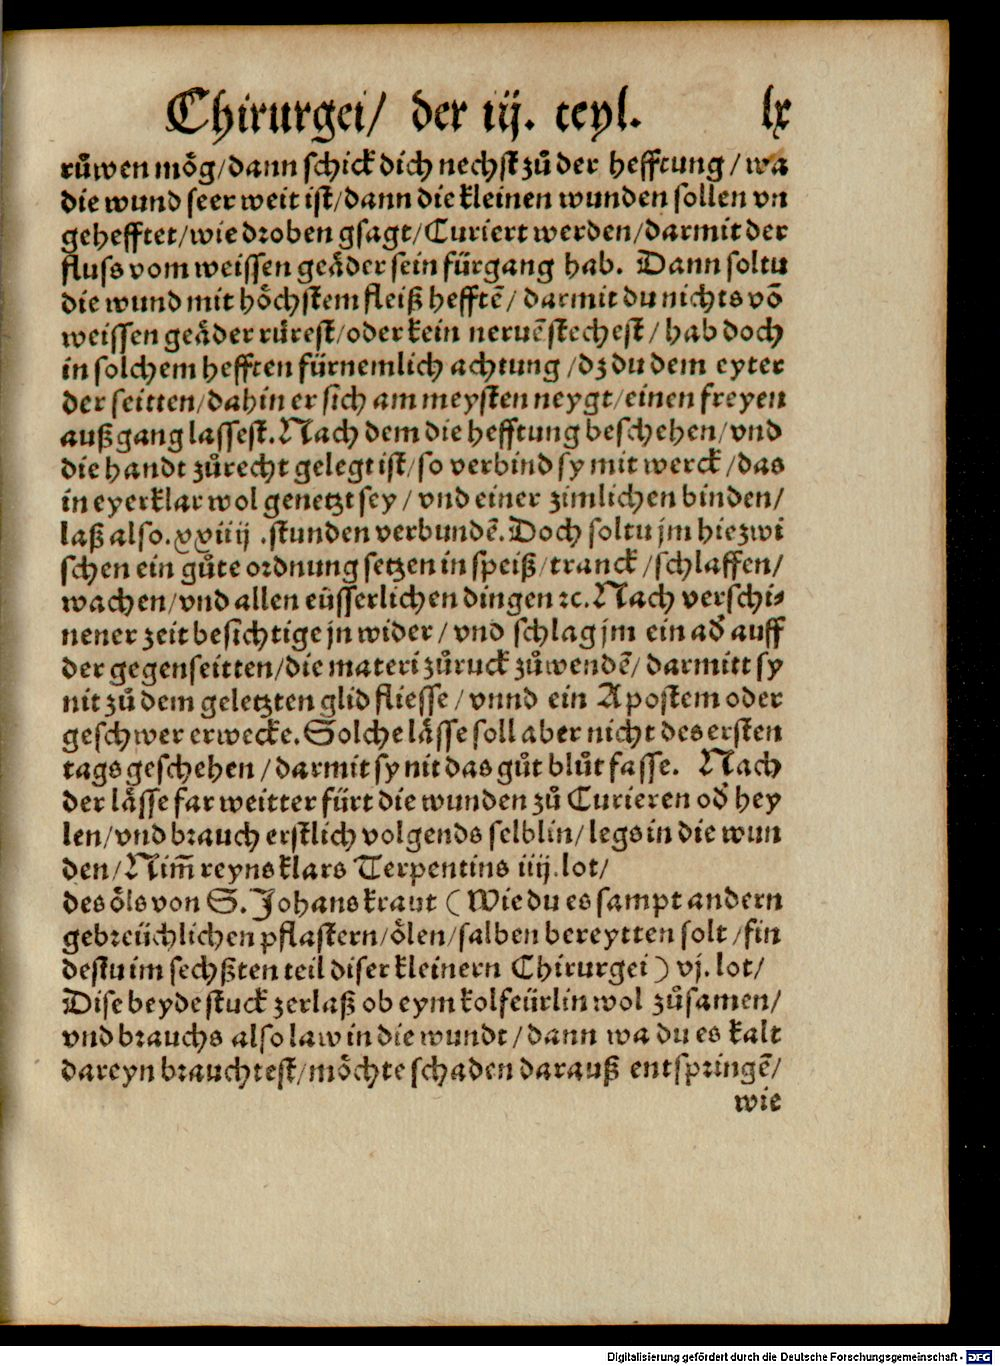 Chirurgei/ der iij. teyl. lx
růwen mög/dann schick dich nechst zů der hefftung/wa
die wund seer weit ist/dann die kleinen wunden sollen vn
gehefftet/wie droben gsagt/Curiert werden/darmit der
fluss vom weissen geäder sein fürgang hab. Dann soltu
die wund mit höchstem fleiß hefftē/darmit du nichts vō
weissen geäder rürest/oder kein neruē stechest/hab doch
in solchem hefften fürnemlich achtung/dz du dem eyter
der seitten/dahin er sich am meysten neygt/einen freyen
außgang lassest. Nach dem die hefftung beschehen/vnd
die handt zůrecht gelegt ist/so verbind sy mit werck/das
in eyerklar wol genetzt sey/vnd einer zimlichen binden/
laß also. xxiiij. stunden verbundē. Doch soltu jm hiezwi
schen ein gůte ordnung setzen in speiß/tranck/schlaffen/
wachen/vnd allen eüsserlichen dingen ꝛc. Nach verschi⸗
nener zeit besichtige jn wider/vnd schlag jm ein ad̕ auff
der gegenseitten/die materi zůruck zůwendē/darmitt sy
nit zů dem geletzten glid fliesse/vnnd ein Apostem oder
geschwer erwecke. Solche lässe soll aber nicht des ersten
tags geschehen/darmit sy nit das gůt blůt fasse. Nach
der lässe far weitter fürt die wunden zů Curieren od̕ hey
len/vnd brauch erstlich volgends selblin/legs in die wun
den/Nim̄ reyns klars Terpentins iiij. lot/
des öls von S. Johans kraut (Wie du es sampt andern
gebreüchlichen pflastern/ölen/salben bereytten solt/fin
destu im sechßten teil diser kleinern Chirurgei) vj. lot/
Dise beyde stuck zerlaß ob eym kolfeürlin wol zůsamen/
vnd brauchs also law in die wundt/dann wa du es kalt
dareyn brauchtest/möchte schaden darauß entspringē/
wie
Digitalisierung gefördert durch die Deutsche Forschungsgemeinschaft - DFG